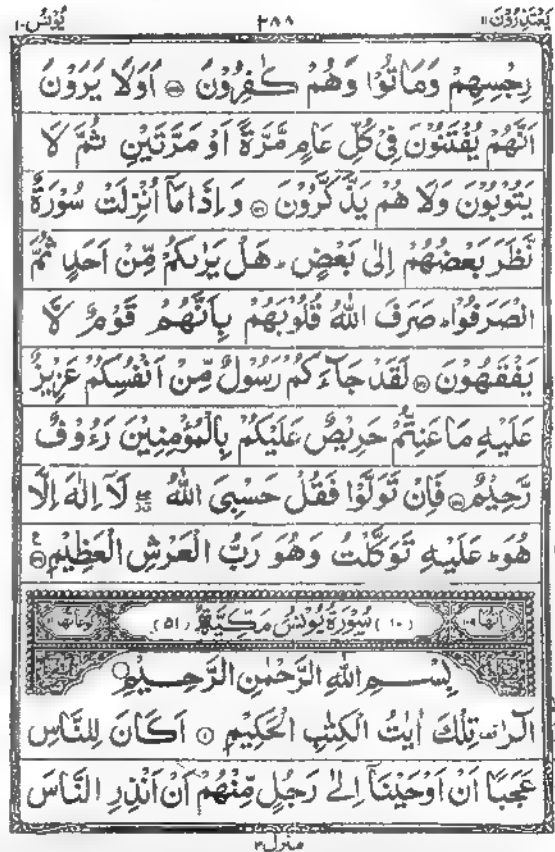 يَعْتَذِرُوْنَ ١١ ٢٨٨ يُوْنُس ١٠
رِجْسِهِمْ وَمَاتُوْا وَهُمْ كٰفِرُوْنَ ۝ اَوَلَا يَرَوْنَ
اَنَّهُمْ يُفْتَنُوْنَ فِيْ كُلِّ عَامٍ مَّرَّةً اَوْ مَرَّتَيْنِ ثُمَّ لَا
يَتُوْبُوْنَ وَلَا هُمْ يَذَّكَّرُوْنَ ۝ وَاِذَا مَآ اُنْزِلَتْ سُوْرَةٌ
نَّظَرَ بَعْضُهُمْ اِلٰى بَعْضٍ ؕ هَلْ يَرٰىكُمْ مِّنْ اَحَدٍ ثُمَّ
انْصَرَفُوْا ؕ صَرَفَ اللّٰهُ قُلُوْبَهُمْ بِاَنَّهُمْ قَوْمٌ لَّا
يَفْقَهُوْنَ ۝ لَقَدْ جَآءَكُمْ رَسُوْلٌ مِّنْ اَنْفُسِكُمْ عَزِيْزٌ
عَلَيْهِ مَا عَنِتُّمْ حَرِيْصٌ عَلَيْكُمْ بِالْمُؤْمِنِيْنَ رَءُوْفٌ
رَّحِيْمٌ ۝ فَاِنْ تَوَلَّوْا فَقُلْ حَسْبِيَ اللّٰهُ لَآ اِلٰهَ اِلَّا
هُوَ ؕ عَلَيْهِ تَوَكَّلْتُ وَهُوَ رَبُّ الْعَرْشِ الْعَظِيْمِ ۝
اٰيَاتُهَا ١٠٩ (١٠) سُوْرَةُ يُوْنُسَ مَكِّيَّةٌ (٥١) رُكُوْعَاتُهَا ١١
بِسْمِ اللّٰهِ الرَّحْمٰنِ الرَّحِيْمِ
الٓرٰ ۫ تِلْكَ اٰيٰتُ الْكِتٰبِ الْحَكِيْمِ ۝١ اَكَانَ لِلنَّاسِ
عَجَبًا اَنْ اَوْحَيْنَآ اِلٰى رَجُلٍ مِّنْهُمْ اَنْ اَنْذِرِ النَّاسَ
منزل ٣